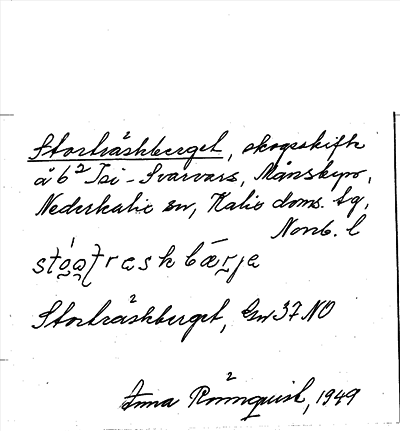 Storträskberget, skogsskifte
å 6² Isi-Svarvars, Månsbyn,
Nederkalix sn, Kalix doms. tg,
Norrb. l
Storträskberget, Gsv 37 NO
Anna Rönnquist, 1949